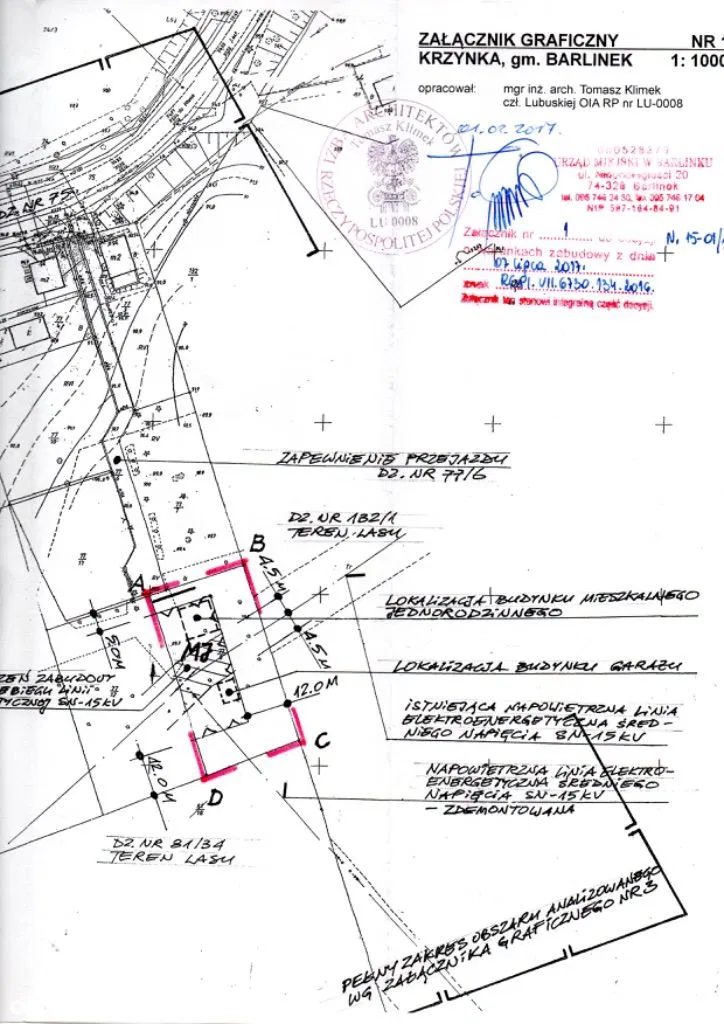 ZAŁĄCZNIK GRAFICZNY NR 1
KRZYNKA, gm. BARLINEK 1: 1000
opracował: mgr inż. arch. Tomasz Klimek
czł. Lubuskiej OIA RP nr LU-0008
01.02.2017.
IZBA ARCHITEKTÓW
RZECZYPOSPOLITEJ POLSKIEJ
Tomasz Klimek
LU 0008
000528279
URZĄD MIEJSKI W BARLINKU
ul. Niepodległości 20
74-320 Barlinek
tel. 095 746 24 50, fax 095 746 17 04
NIP 597-164-84-91
Załącznik nr 1 do decyzji
N. 15-01/
warunkach zabudowy z dnia
07 lipca 2017.
znak RGPI.VII.6730.134.2016.
Załącznik ten stanowi integralną część decyzji.
DZ. NR 75
m2
m2
ZAPEWNIENIE PRZEJAZDU
DZ. NR 77/6
DZ. NR 132/1
TEREN LASU
A
B
4.5 M
4.5 M
5.0 M
LOKALIZACJA BUDYNKU MIESZKALNEGO
JEDNORODZINNEGO
MJ
LOKALIZACJA BUDYNKU GARAŻU
ZABUDOWY
EBIEGU LINII
TYCZNEJ SN-15KV
12.0 M
ISTNIEJĄCA NAPOWIETRZNA LINIA
ELEKTROENERGETYCZNA ŚRED-
NIEGO NAPIĘCIA SN-15KV
C
12.0 M
D
NAPOWIETRZNA LINIA ELEKTRO-
ENERGETYCZNA ŚREDNIEGO
NAPIĘCIA SN-15KV
- ZDEMONTOWANA
DZ. NR 81/34
TEREN LASU
PEŁNY ZAKRES OBSZARU ANALIZOWANEGO
WG ZAŁĄCZNIKA GRAFICZNEGO NR 3